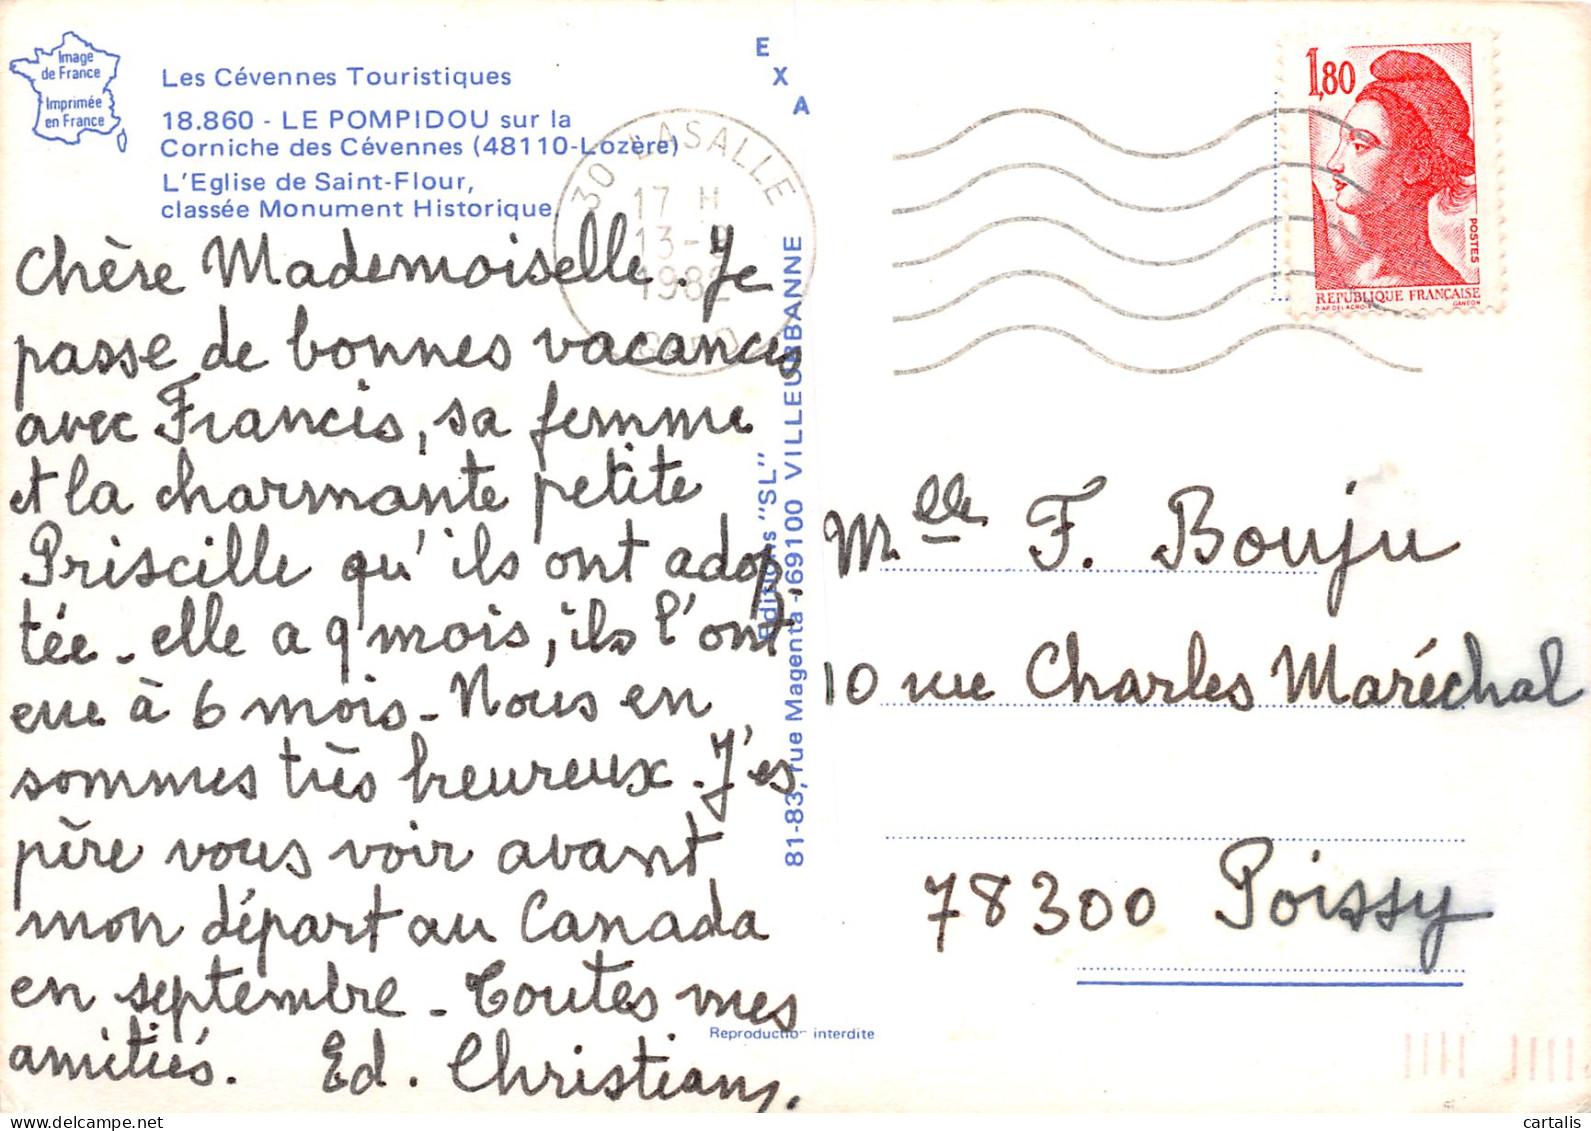 Image
de France
Imprimée
en France
Les Cévennes Touristiques
18.860 - LE POMPIDOU sur la
Corniche des Cévennes (48110-Lozère)
L'Eglise de Saint-Flour,
classée Monument Historique
E
X
A
30 LASALLE
17 H
13-
1982
GARD
1,80
POSTES
REPUBLIQUE FRANÇAISE
D'AP. DELACROIX
GANDON
Chère Mademoiselle. Je
passe de bonnes vacances
avec Francis, sa femme
et la charmante petite
Priscille qu'ils ont adop
tée - elle a 9 mois, ils l'ont
eue à 6 mois - Nous en
sommes très heureux. J'es
père vous voir avant
mon départ au Canada
en septembre - Toutes mes
amitiés. Ed. Christian.
Editions "SL"
81-83, rue Magenta - 69100 VILLEURBANNE
Reproduction interdite
Melle F. Bouju
10 rue Charles Maréchal
78300 Poissy
cartalis